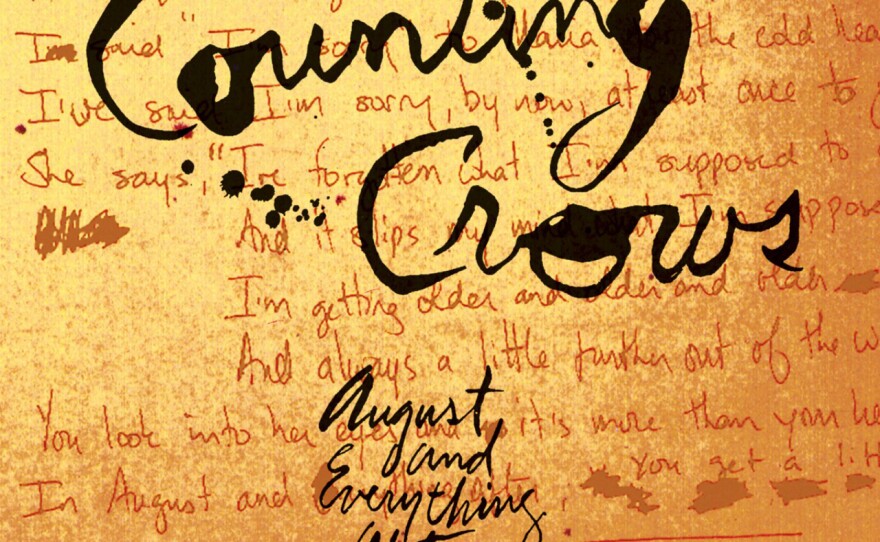 Counting
Crows
August
and
Everything
I said "I'm sorry to Maria for the cold hea
I've said I'm sorry, by now, at least once to
She says, "I've forgotten what I'm supposed to
And it slips my mind what I'm suppose
I'm getting older and older and older
And always a little further out of the w
You look into her eyes and it's more than your he
In August and
you get a litt